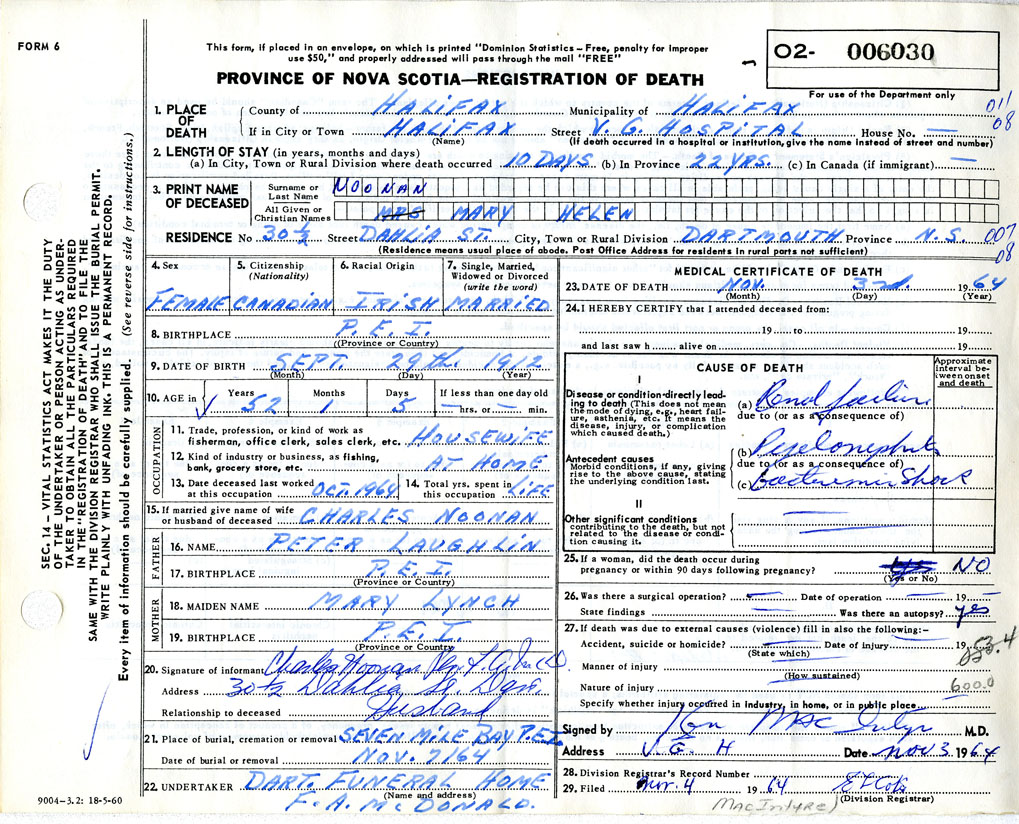 FORM 6
This form, if placed in an envelope, on which is printed "Dominion Statistics – Free, penalty for improper
use $50," and properly addressed will pass through the mail "FREE"
O2- 006030
PROVINCE OF NOVA SCOTIA—REGISTRATION OF DEATH
For use of the Department only
011
08
1. PLACE OF DEATH
County of HALIFAX Municipality of HALIFAX
If in City or Town HALIFAX Street V. G. HOSPITAL House No. —
(Name) (If death occurred in a hospital or institution, give the name instead of street and number)
2. LENGTH OF STAY (in years, months and days)
(a) In City, Town or Rural Division where death occurred 10 DAYS (b) In Province 22 YRS. (c) In Canada (if immigrant) —
3. PRINT NAME OF DECEASED
Surname or Last Name NOONAN
All Given or Christian Names MRS MARY HELEN
RESIDENCE No 30 1/2 Street DAHLIA ST. City, Town or Rural Division DARTMOUTH Province N.S. 007
08
(Residence means usual place of abode. Post Office Address for residents in rural parts not sufficient)
4. Sex FEMALE
5. Citizenship (Nationality) CANADIAN
6. Racial Origin IRISH
7. Single, Married, Widowed or Divorced (write the word) MARRIED
8. BIRTHPLACE P.E.I.
(Province or Country)
9. DATE OF BIRTH SEPT. 29th. 1912
(Month) (Day) (Year)
10. AGE in Years 52 Months 1 Days 5 If less than one day old — hrs. or — min.
OCCUPATION
11. Trade, profession, or kind of work as
fisherman, office clerk, sales clerk, etc. HOUSEWIFE
12. Kind of industry or business, as fishing,
bank, grocery store, etc. AT HOME
13. Date deceased last worked at this occupation OCT. 1964
14. Total yrs. spent in this occupation LIFE
15. If married give name of wife
or husband of deceased CHARLES NOONAN
FATHER
16. NAME PETER LAUGHLIN
17. BIRTHPLACE P.E.I.
(Province or Country)
MOTHER
18. MAIDEN NAME MARY LYNCH
19. BIRTHPLACE P.E.I.
(Province or Country)
20. Signature of informant Charles Noonan Per
Address 30 1/2 Dahlia St.
Relationship to deceased Husband
21. Place of burial, cremation or removal SEVEN MILE BAY P.E.I.
Date of burial or removal NOV. 7/64
22. UNDERTAKER DART. FUNERAL HOME
(Name and address)
F. A. MCDONALD.
MEDICAL CERTIFICATE OF DEATH
23. DATE OF DEATH NOV. 3rd. 1964
(Month) (Day) (Year)
24. I HEREBY CERTIFY that I attended deceased from:
19 to 19
and last saw h alive on 19
CAUSE OF DEATH
Approximate interval between onset and death
I
Disease or condition directly leading to death (This does not mean the mode of dying, e.g., heart failure, asthenia, etc. It means the disease, injury, or complication which caused death.)
(a) Renal failure
due to (or as a consequence of)
Antecedent causes
Morbid conditions, if any, giving rise to the above cause, stating the underlying condition last.
(b) Pyelonephritis
due to (or as a consequence of)
(c) Bacteremic Shock
II
Other significant conditions
contributing to the death, but not related to the disease or condition causing it.
25. If a woman, did the death occur during
pregnancy or within 90 days following pregnancy? NO
(Yes or No)
26. Was there a surgical operation? — Date of operation — 19 —
State findings — Was there an autopsy? yes
27. If death was due to external causes (violence) fill in also the following:–
Accident, suicide or homicide? Date of injury 19
(State which)
Manner of injury
(How sustained)
Nature of injury 600.0
Specify whether injury occurred in industry, in home, or in public place
Signed by M.D.
Address V. G. H Date NOV 3 1964
28. Division Registrar's Record Number
29. Filed Nov. 4 1964
(Division Registrar)
MacIntyre)
SEC. 14 – VITAL STATISTICS ACT MAKES IT THE DUTY
OF THE UNDERTAKER OR PERSON ACTING AS UNDER-
TAKER TO OBTAIN ALL THE PARTICULARS REQUIRED
IN THE "REGISTRATION OF DEATH" AND TO FILE THE
SAME WITH THE DIVISION REGISTRAR WHO SHALL ISSUE THE BURIAL PERMIT.
WRITE PLAINLY WITH UNFADING INK. THIS IS A PERMANENT RECORD.
Every item of information should be carefully supplied. (See reverse side for instructions.)
9004–3.2: 18-5-60